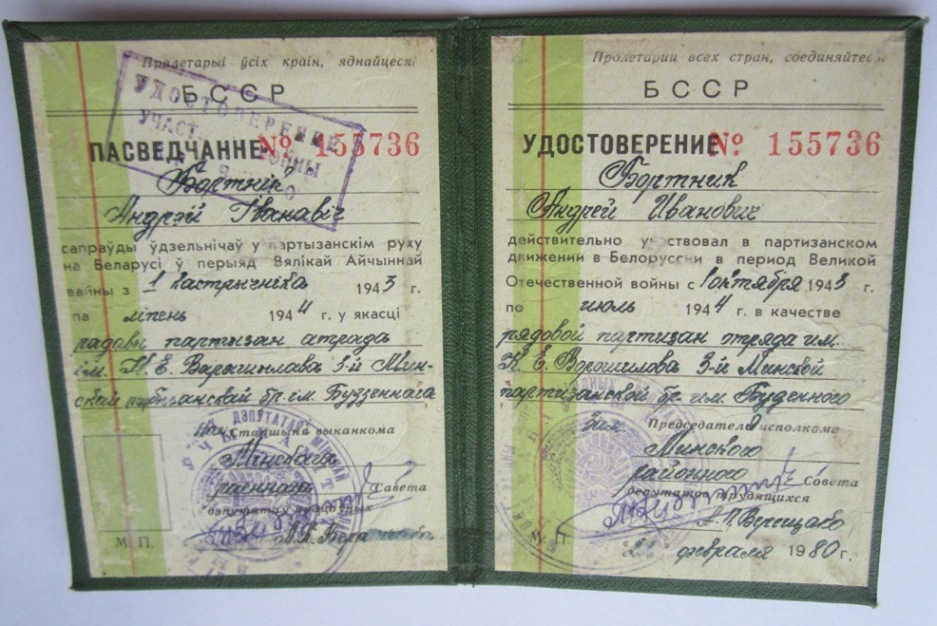 Пралетарыі ўсіх краін, яднайцеся!
БССР
УДОСТОВЕРЕНИЕ
УЧАСТ ВОЙНЫ
ПАСВЕДЧАННЕ № 155736
Бортнік
Андрэй Іванавіч
сапраўды ўдзельнічаў у партызанскім руху
на Беларусі ў перыяд Вялікай Айчыннай
вайны з 1 кастрычніка 1943 г.
па ліпень 1944 г. у якасці
радавы партизан атрада
ім. К. Е. Варашилава 3-й Мин-
скай партызанскай бр. ім. Будзеннага
старшыня выканкома
Мінскага
раённага Савета
дэпутатаў працоўных
М. П.
Пролетарии всех стран, соединяйтесь
БССР
УДОСТОВЕРЕНИЕ № 155736
Бортник
Андрей Иванович
действительно участвовал в партизанском
движении в Белоруссии в период Великой
Отечественной войны с 1 октября 1943 г.
по июль 1944 г. в качестве
рядовой партизан отряда им.
К. Е. Ворошилова 3-й Минской
партизанской бр. им. Буденного
Зам Председателя исполкома
Минского
районного Совета
депутатов трудящихся
М. П.
февраля 1980 г.